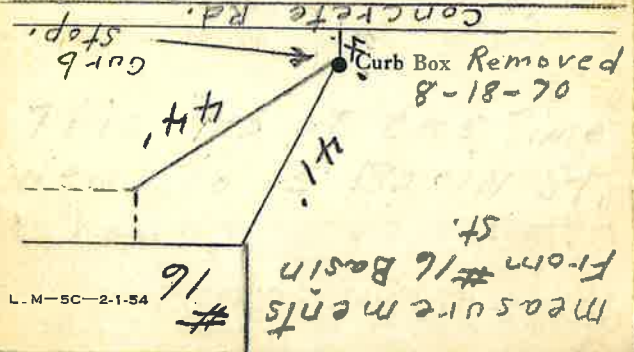 Concrete Rd.
Curb
Stop.
4'
Curb Box Removed
8-18-70
44'
41'
measurements
From #16 Basin
St.
#
16
L.M—5C—2-1-54